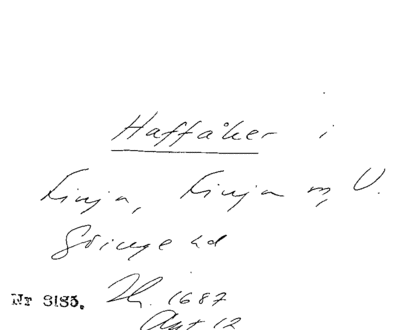 Haffåker i
Finja, Finja m, V.
Göinge hd
Nr 3185. Jh. 1687
Akt 12